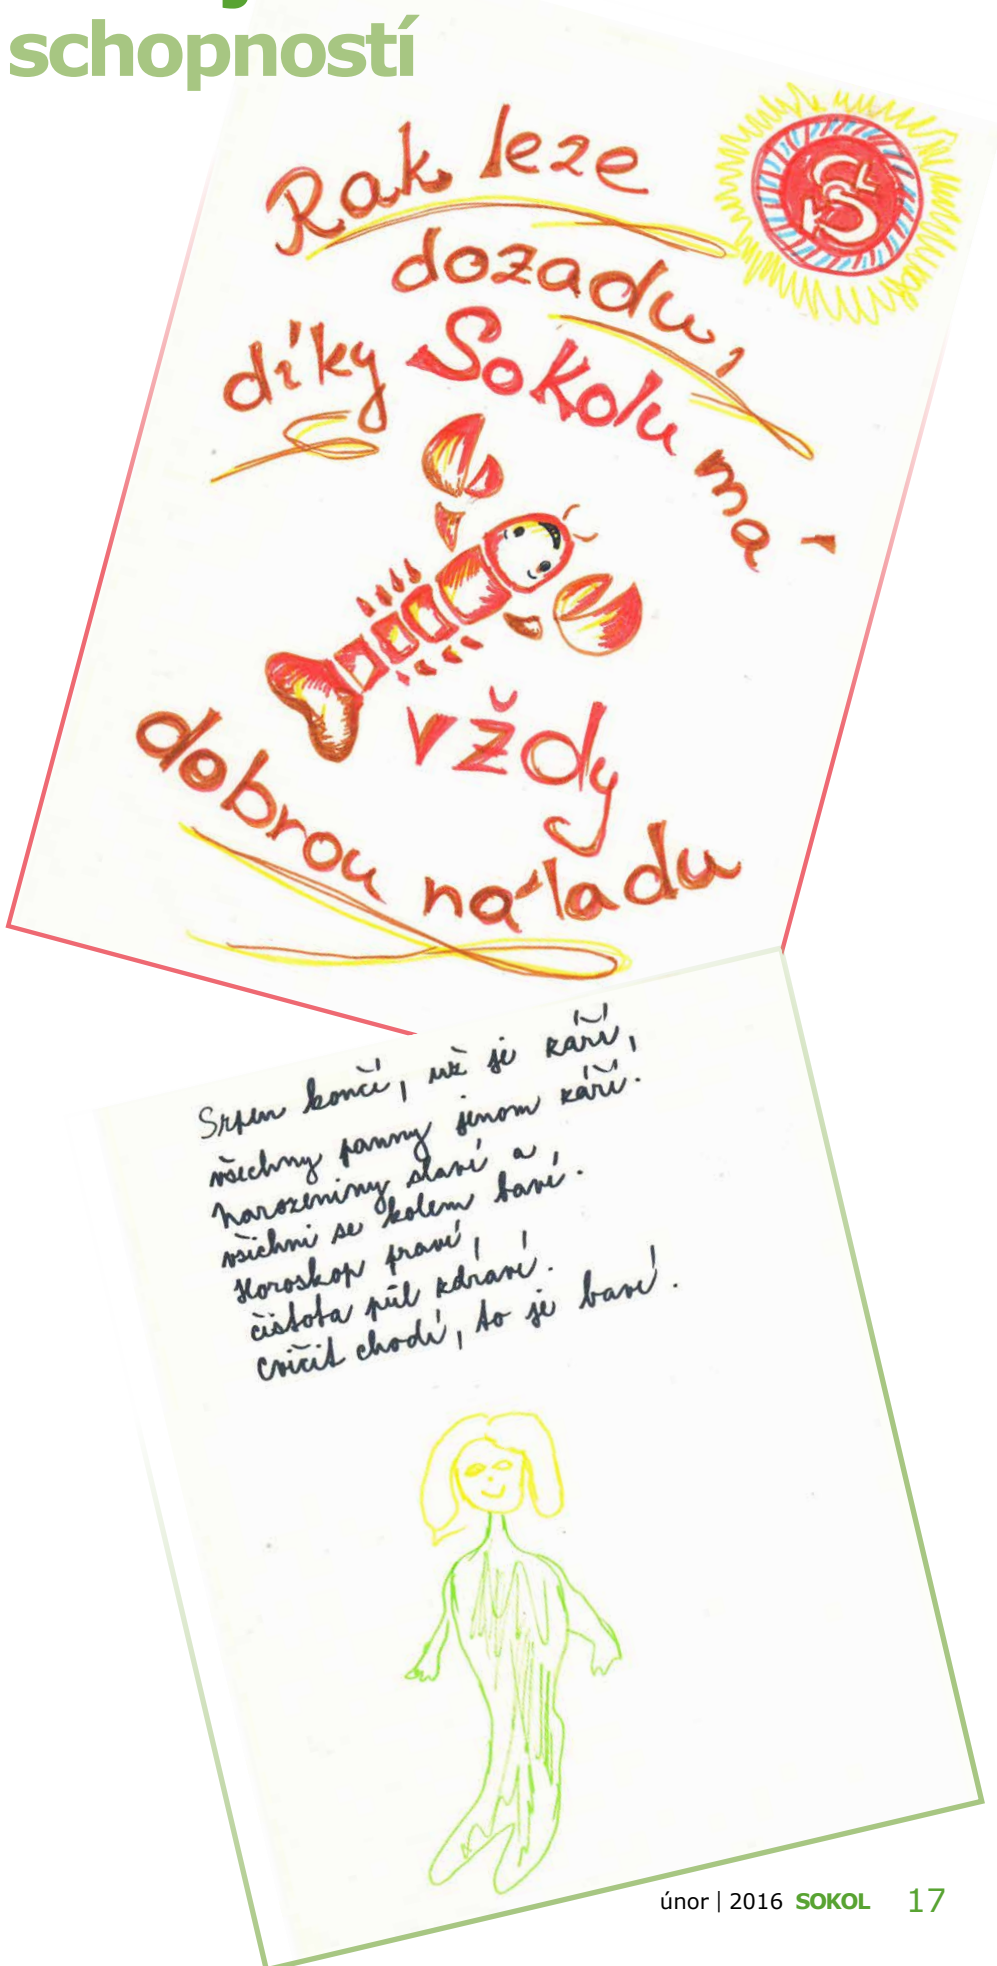 schopností
Rak leze
dozadu,
díky Sokolu má
vždy
dobrou náladu
Srpen končí, už je září,
všechny panny jenom září.
Narozeniny slaví a
všichni se kolem baví.
Horoskop praví,
čistota půl zdraví.
Cvičit chodí, to je baví.
únor | 2016 SOKOL 17